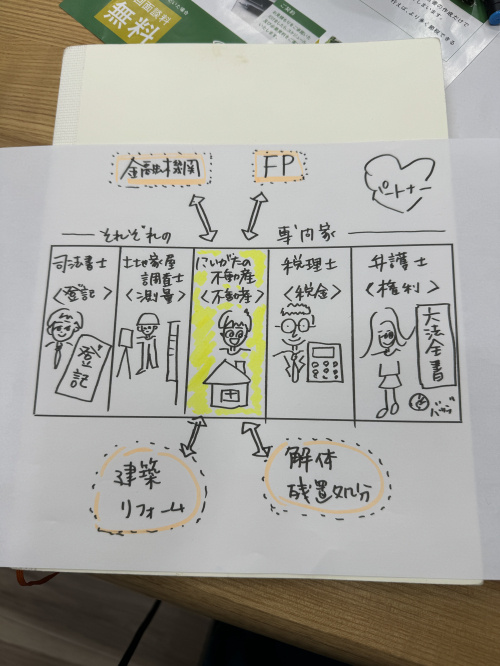 面談料
無料
ご契約
金融機関
FP
パートナー
それぞれの
専門家
司法書士
〈登記〉
登記
土地家屋
調査士
〈測量〉
にいがたの
不動産
〈不動産〉
税理士
〈税金〉
弁護士
〈権利〉
六法全書
バッヂ
建築
リフォーム
解体
残置処分